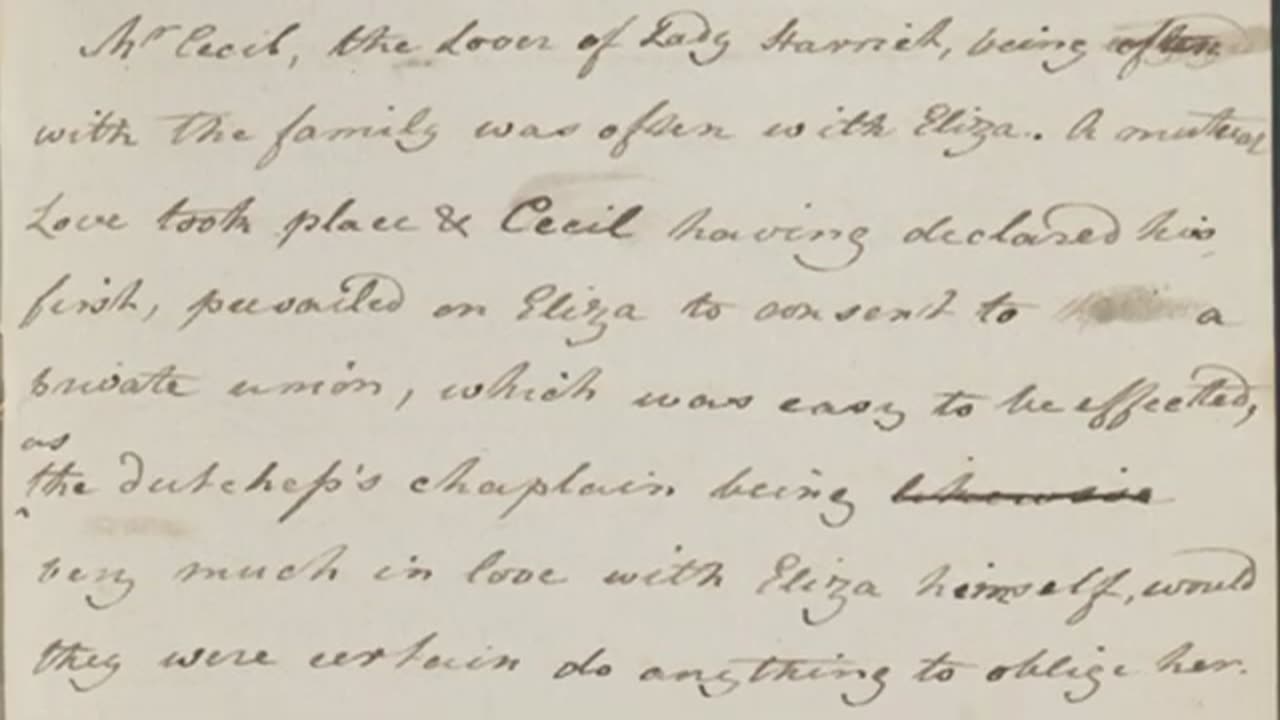 Mr Cecil, the Lover of Lady Harriet, being often
with the family was often with Eliza. A mutual
Love took place & Cecil having declared his
first, prevailed on Eliza to consent to a
private union, which was easy to be effected,
as
the dutchess's chaplain being likewise
very much in love with Eliza himself, would
they were certain do anything to oblige her.